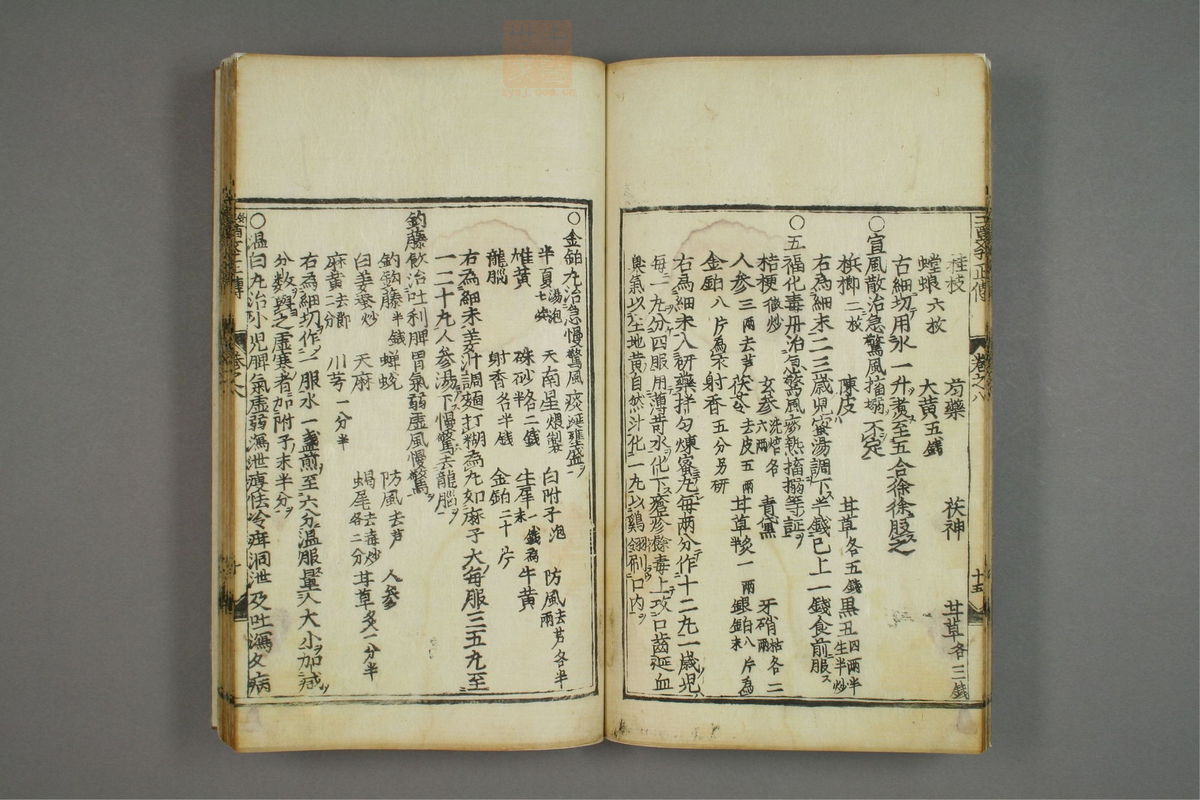 桂枝　芍藥　茯神　甘草各三錢
螳螂六枚　大黃五錢
右細切用水一升煮至五合徐徐服之
○宣風散治急驚風搐搦不定
檳榔二枚　陳皮　甘草各五錢　黑丑四兩半生半炒
右為細末二三歲兒蜜湯調下半錢已上一錢食前服
○五福化毒丹治急驚風痰熱搐搦等証
桔梗微炒　玄參洗焙各六兩　青黛　牙硝枯各二兩
人參三兩去芦　茯苓去皮五兩　甘草炙一兩　銀鉑八片為末
金鉑八片為衣　射香五分另研
右為細末入研藥拌勻煉蜜丸每兩分作十二丸一歲兒
每一丸分四服用薄荷水化下瘡疹餘毒上攻口齒涎血
臭氣以生地黃自然汁化一丸以鷄翎刷口內
十五
○金鉑丸治急慢驚風痰涎壅盛
半夏湯泡七次　天南星煨製　白附子泡　防風去芦各半兩
雄黃　硃砂各二錢半　生犀末一錢為　牛黃
龍腦　射香各半錢　金鉑二十片
右為細末姜汁調麵打糊為丸如麻子大每服三五丸至
一二十九人參湯下慢驚去龍腦
鈎藤飲治吐利脾胃氣弱虛風慢驚
鈎鈎藤半錢　蟬蛻　防風去芦　人參
白姜蚕炒　天麻　蝎尾去毒炒各二分　甘草炙一分半
麻黃去節二分　川芎一分半
右為細切作一服水一盞煎至六分溫服量人大小加減
分數與之虛寒者加附子末半分
○溫白丸治小兒脾氣虛弱瀉泄瘦怯冷疳洞泄及吐瀉久病